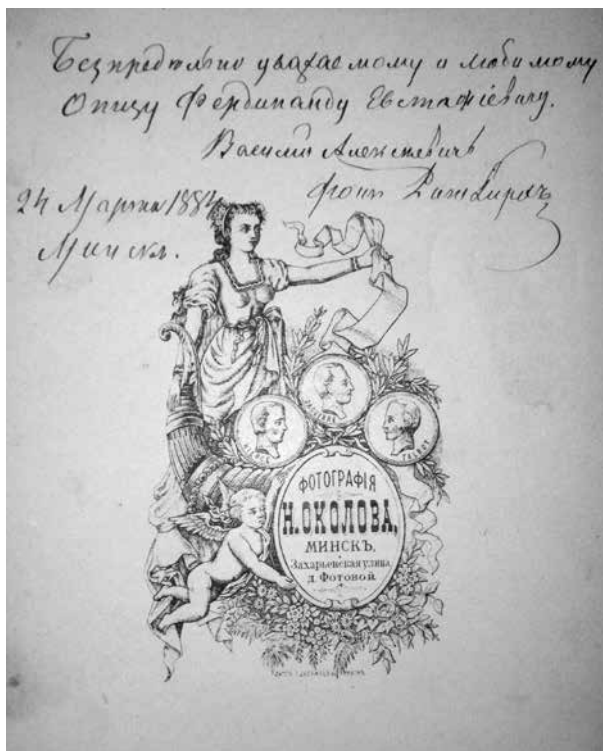 Безпредѣльно уважаемому и любимому
Отцу Фердинанду Евстафіевичу.
Василій Алексѣевичъ
фонъ
24 Марта 1884
Минскъ.
ТАЛБОТ
ФОТОГРАФІЯ
Н. ОКОЛОВА,
МИНСКЪ,
Захарьевская улица,
д. Фотовой.